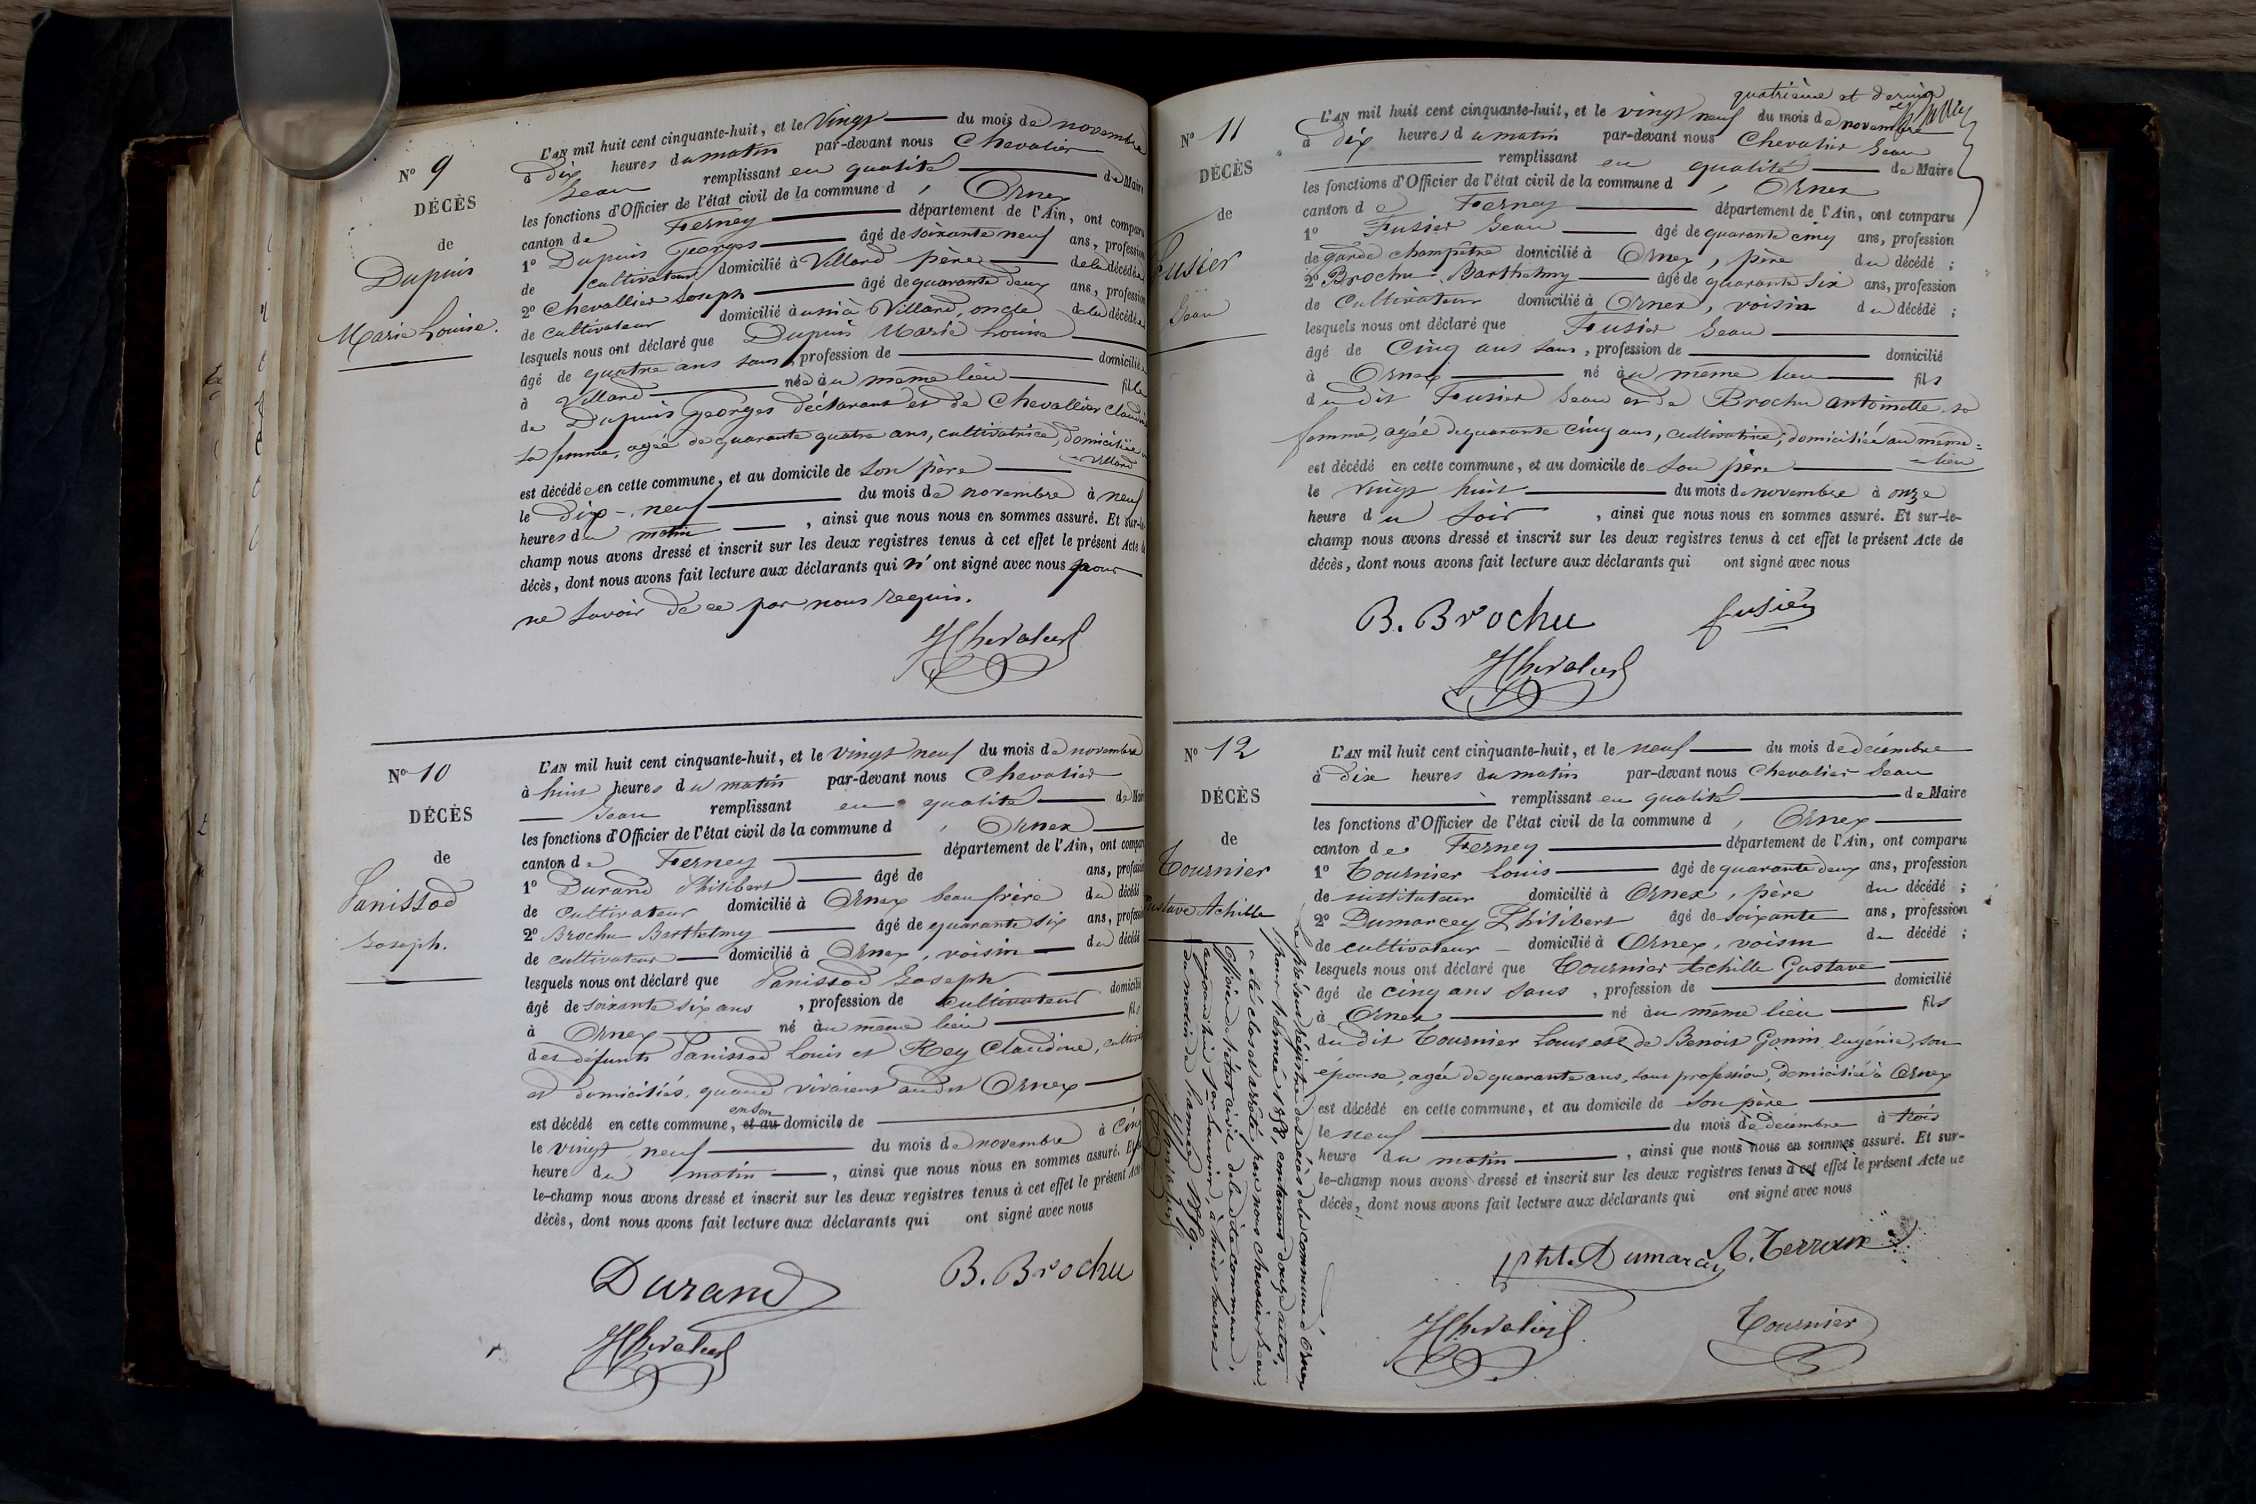 N° 9
DÉCÈS
de
Dupuis
Marie Louise.
L'AN mil huit cent cinquante-huit, et le vingt du mois de novembre
à dix heures du matin par-devant nous Chevalier
Jean remplissant en qualité de Maire
les fonctions d'Officier de l'état civil de la commune d' Ornex
canton de Ferney département de l'Ain, ont comparu
1° Dupuis Georges âgé de soixante neuf ans, profession
de cultivateur domicilié à Villard père de la décédée
2° Chevallier Joseph âgé de quarante deux ans, profession
de cultivateur domicilié à Villard, oncle de la décédée
lesquels nous ont déclaré que Dupuis Marie Louise
âgé de quatre ans sans, profession de domiciliée
à Villard née au même lieu fille
de Dupuis Georges déclarant et de Chevallier Claudine
sa femme, agée de quarante quatre ans, cultivatrice, domiciliée
à Villard
est décédée en cette commune, et au domicile de son père
le dix-neuf du mois de novembre à neuf
heures du matin, ainsi que nous nous en sommes assuré. Et sur-le-
champ nous avons dressé et inscrit sur les deux registres tenus à cet effet le présent Acte de
décès, dont nous avons fait lecture aux déclarants qui n'ont signé avec nous pour
ne savoir de ce par nous requis.
JChevalier
N° 10
DÉCÈS
de
Panissod
Joseph.
L'AN mil huit cent cinquante-huit, et le vingt neuf du mois de novembre
à huit heures du matin par-devant nous Chevalier
Jean remplissant en qualité de Maire
les fonctions d'Officier de l'état civil de la commune d' Ornex
canton de Ferney département de l'Ain, ont comparu
1° Durand Philibert âgé de ans, profession
de cultivateur domicilié à Ornex beau frère du décédé
2° Brochu Barthelmy âgé de quarante six ans, profession
de cultivateur domicilié à Ornex, voisin du décédé
lesquels nous ont déclaré que Panissod Joseph
âgé de soixante six ans, profession de cultivateur domicilié
à Ornex né au même lieu fils
des défunts Panissod Louis et Rey Claudine,
et domiciliés, quand vivaient audit Ornex
est décédé en cette commune, et au en son domicile de
le vingt neuf du mois de novembre à cinq
heure du matin, ainsi que nous nous en sommes assuré. Et sur-
le-champ nous avons dressé et inscrit sur les deux registres tenus à cet effet le présent Acte
décès, dont nous avons fait lecture aux déclarants qui ont signé avec nous
Durand B. Brochu
JChevalier
quatrième et dernier
N° 11
DÉCÈS
de
Fusier
Jean
L'AN mil huit cent cinquante-huit, et le vingt neuf du mois de novembre
à dix heures du matin par-devant nous Chevalier Jean
remplissant en qualité de Maire
les fonctions d'Officier de l'état civil de la commune d' Ornex
canton de Ferney département de l'Ain, ont comparu
1° Fusier Jean âgé de quarante cinq ans, profession
de garde champêtre domicilié à Ornex, père du décédé ;
2° Brochu Barthelmy âgé de quarante six ans, profession
de cultivateur domicilié à Ornex, voisin du décédé ;
lesquels nous ont déclaré que Fusier Jean
âgé de cinq ans sans, profession de domicilié
à Ornex né au même lieu fils
du dit Fusier Jean et de Brochu antoinette sa
femme, agée de quarante cinq ans, cultivatrice, domiciliée au même =
= lieu
est décédé en cette commune, et au domicile de son père
le vingt huit du mois de novembre à onze
heure du soir, ainsi que nous nous en sommes assuré. Et sur-le-
champ nous avons dressé et inscrit sur les deux registres tenus à cet effet le présent Acte de
décès, dont nous avons fait lecture aux déclarants qui ont signé avec nous
B. Brochu fusier
JChevalier
N° 12
DÉCÈS
de
Tournier
Gustave Achille
L'AN mil huit cent cinquante-huit, et le neuf du mois de décembre
à dix heures du matin par-devant nous Chevalier Jean
remplissant en qualité de Maire
les fonctions d'Officier de l'état civil de la commune d' Ornex
canton de Ferney département de l'Ain, ont comparu
1° Tournier Louis âgé de quarante deux ans, profession
de instituteur domicilié à Ornex, père du décédé ;
2° Dumarcey Philibert âgé de soixante ans, profession
de cultivateur domicilié à Ornex, voisin du décédé ;
lesquels nous ont déclaré que Tournier Achille Gustave
âgé de cinq ans sans, profession de domicilié
à Ornex né au même lieu fils
du dit Tournier Louis et de Benoit Gonin Eugénie, son
épouse, agée de quarante ans, sans profession, domiciliée à Ornex
est décédé en cette commune, et au domicile de son père
le neuf du mois de décembre à trois
heure du matin, ainsi que nous nous en sommes assuré. Et sur-
le-champ nous avons dressé et inscrit sur les deux registres tenus à cet effet le présent Acte de
décès, dont nous avons fait lecture aux déclarants qui ont signé avec nous
Phil. Dumarcey A. Terroux
JChevalier Tournier
Le présent régistre des décès de la commune d'Ornex
pour l'année 1858, contenant douze actes,
a été clos et arrêté par nous Chevalier Jean,
officier de l'état civil de la dite commune,
aujourd'hui 1er Janvier, à huit heures
du matin de l'année 1859.
JChevalier